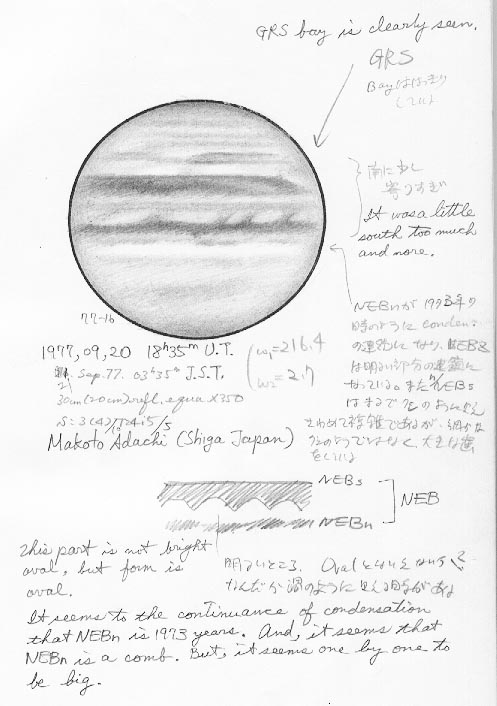 GRS bay is clearly seen.
GRS
Bayははっきり
している
南に少し
寄りすぎ
It was a little
south too much
and more.
77-16
1977,09,20 18h35m U.T.
Sep.77. 03h35m J.S.T.
30cm(20cm)refl. equa X350
Makoto Adachi (Shiga Japan)
ω1=216.4
ω2=2.7
NEBnが1973年の
時のように conden
の連続になり、NEBs
は明るい部分の連続に
なっている。また NEBs
はまるで
きわめて複雑であるが、細かな
をしている
NEBs
NEB
NEBn
This part is not bright
oval, but form is
oval.
明るいところ. Ovalとはいえない
なんだか渦のように見える時がある
It seems to the continuance of condensation
that NEBn is 1973 years. And, it seems that
NEBn is a comb. But, it seems one by one to
be big.